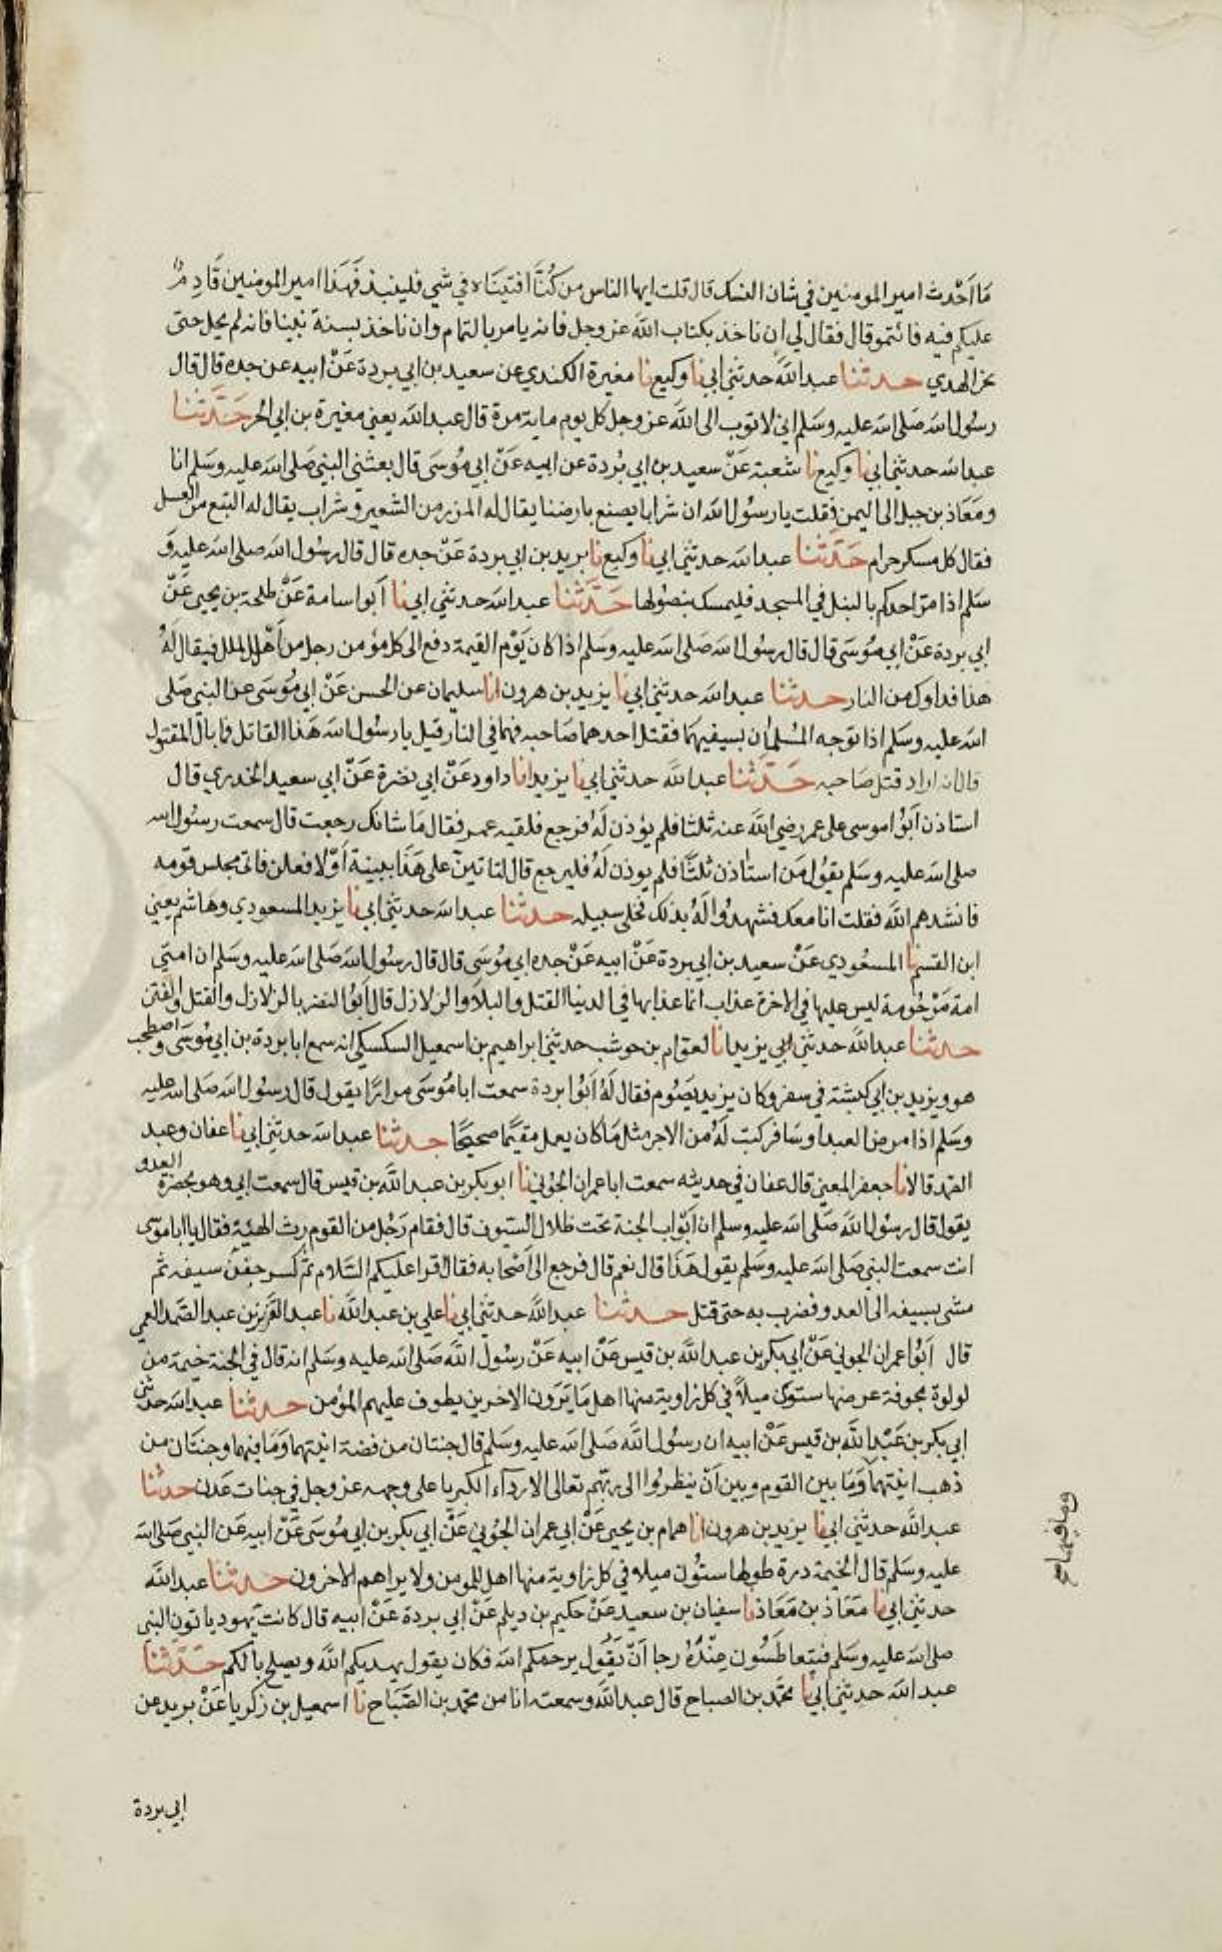 ما احدث امير المومنين في شان النسك قال قلت ايها الناس من كنا افتيناه في شي فليتئذ فهذا امير المومنين قادم
عليكم فيه فائتمو قال فقال لي ان ناخذ بكتاب الله عز وجل فانه يامر بالتمام وان ناخذ بسنة نبينا فانه لم يحل حتى
نحر الهدي حدثنا عبد الله حدثني ابي نا وكيع نا مغيرة الكندي عن سعيد بن ابي بردة عن ابيه عن جده قال قال
رسول الله صلى الله عليه وسلم اني لاتوب الى الله عز وجل كل يوم ماية مرة قال عبد الله يعني مغيرة بن ابي الحر حدثنا
عبد الله حدثني ابي نا وكيع نا شعبة عن سعيد بن ابي بردة عن ابيه عن ابي موسى قال بعثني النبي صلى الله عليه وسلم انا
ومعاذ بن جبل الى اليمن فقلت يا رسول الله ان شرابا يصنع بارضنا يقال له المزر من الشعير وشراب يقال له البتع من العسل
فقال كل مسكر حرام حدثنا عبد الله حدثني ابي نا وكيع نا بريد بن ابي بردة عن جده قال قال رسول الله صلى الله عليه و
سلم اذا مر احدكم بالنبل في المسجد فليمسك بنصولها حدثنا عبد الله حدثني ابي نا ابو اسامة عن طلحة بن يحيى عن
ابي بردة عن ابي موسى قال قال رسول الله صلى الله عليه وسلم اذا كان يوم القيمة دفع الى كل مؤمن رجل من اهل الملل فيقال له
هذا فداوك من النار حدثنا عبد الله حدثني ابي نا يزيد بن هرون انا سليمان عن الحسن عن ابي موسى عن النبي صلى
الله عليه وسلم اذا توجه المسلمان بسيفيهما فقتل احدهما صاحبه فهما في النار قيل يا رسول الله هذا القاتل فما بال المقتول
قال انه اراد قتل صاحبه حدثنا عبد الله حدثني ابي نا يزيد انا داود عن ابي نضرة عن ابي سعيد الخدري قال
استاذن ابو موسى على عمر رضي الله عنه ثلثا فلم يؤذن له فرجع فلقيه عمر فقال ما شانك رجعت قال سمعت رسول الله
صلى الله عليه وسلم يقول من استاذن ثلثا فلم يوذن له فليرجع قال لتاتين على هذا ببينة او لافعلن فاتى مجلس قومه
فانشدهم الله فقلت انا معك فشهدوا له بذلك فخلى سبيله حدثنا عبد الله حدثني ابي نا يزيد المسعودي وهاشم يعني
ابن القسم نا المسعودي عن سعيد بن ابي بردة عن ابيه عن جده ابي موسى قال قال رسول الله صلى الله عليه وسلم ان امتي
امة مرحومة ليس عليها في الاخرة عذاب انما عذابها في الدنيا القتل والبلاء والزلازل قال ابو النضر بالزلازل والقتل والفتن
حدثنا عبد الله حدثني ابي يزيد انا لعوام بن حوشب حدثني ابراهيم بن اسمعيل السكسكي انه سمع ابا بردة بن ابي موسى واصطحب
هو ويزيد بن ابي كبشة في سفر وكان يزيد يصوم فقال له ابو بردة سمعت ابا موسى مرارا يقول قال رسول الله صلى الله عليه
وسلم اذا مرض العبد او سافر كتب له من الاجر مثل ما كان يعمل مقيما صحيحا حدثنا عبد الله حدثني ابي نا عفان وعبد
الصمد قالا نا جعفر المعنى قال عفان في حديثه سمعت ابا عمران الجوني نا ابو بكر بن عبد الله بن قيس قال سمعت ابي وهو بحضرة العدو
يقول قال رسول الله صلى الله عليه وسلم ان ابواب الجنة تحت ظلال السيوف قال فقام رجل من القوم رث الهيئة فقال يا ابا موسى
انت سمعت النبي صلى الله عليه وسلم يقول هذا قال نعم قال فرجع الى اصحابه فقال اقرا عليكم السلام ثم كسر جفن سيفه ثم
مشى بسيفه الى العدو فضرب به حتى قتل حدثنا عبد الله حدثني ابي نا علي بن عبد الله نا عبد العزيز بن عبد الصمد العمي
قال ابو عمران الجوني عن ابي بكر بن عبد الله بن قيس عن ابيه عن رسول الله صلى الله عليه وسلم انه قال في الجنة خيمة من
لولوة مجوفة عرضها ستون ميلا في كل زاوية منها اهل ما يرون الاخرين يطوف عليهم المؤمن حدثنا عبد الله حدثني
ابي بكر بن عبد الله بن قيس عن ابيه ان رسول الله صلى الله عليه وسلم قال جنتان من فضة انيتهما وما فيهما وجنتان من
ذهب انيتهما وما بين القوم وبين ان ينظروا الى ربهم تعالى الا رداء الكبريا على وجهه عز وجل في جنات عدن حدثنا
عبد الله حدثني ابي نا يزيد بن هرون انا همام بن يحيى عن ابي عمران الجوني عن ابي بكر بن ابي موسى عن ابيه عن النبي صلى الله
عليه وسلم قال الخيمة درة طولها ستون ميلا في كل زاوية منها اهل للمومن ولا يراهم الاخرون حدثنا عبد الله
حدثني ابي نا معاذ بن معاذ نا سفيان بن سعيد عن حكيم بن ديلم عن ابي بردة عن ابيه قال كانت يهود ياتون النبي
صلى الله عليه وسلم فيتعاطسون عنده رجا ان يقول يرحمكم الله فكان يقول يهديكم الله ويصلح بالكم حدثنا
عبد الله حدثني ابي نا محمد بن الصباح قال عبد الله وسمعته انا من محمد بن الصباح نا اسمعيل بن زكريا عن بريد عن
ابي بردة
وما فيهما صح